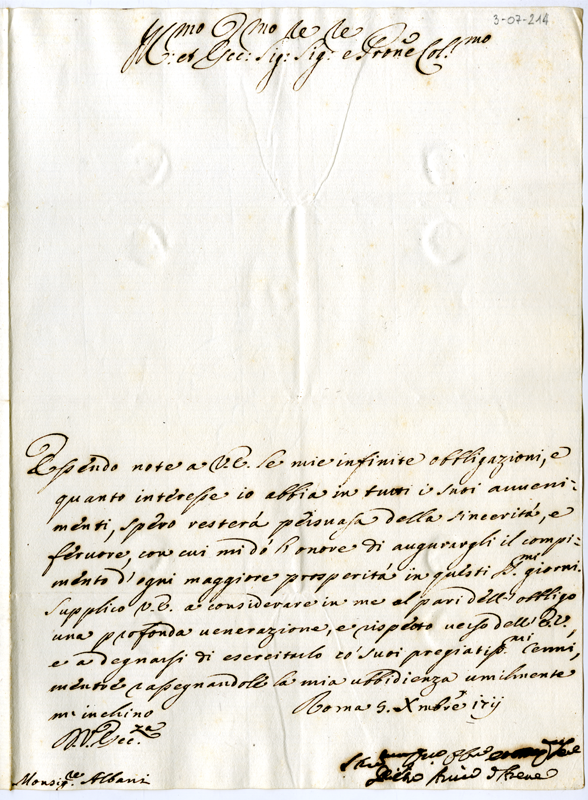 3-07-214
Ill.mo et Ecc: Sig: Sig.re e Prone Col.mo
Essendo note a V.E. le mie infinite obbligazioni, e
quanto interesse io abbia in tutti i suoi avveni-
menti, spero resterà persuasa della sincerità, e
fervore, con cui mi dò l'onore di augurargli il compi-
mento d'ogni maggiore prosperità in questi S.mi giorni.
Supplico V.E. a considerare in me al pari dell'obbligo
una profonda venerazione, e rispetto verso dell'E.V.,
e a degnarsi di esercitarlo co' suoi pregiatis.mi cenni,
mentre rassegnandole la mia ubbidienza umilmente
m'inchino Roma 5. Xmbre 17
D.V. Ecc.za
Monsig.re Albani